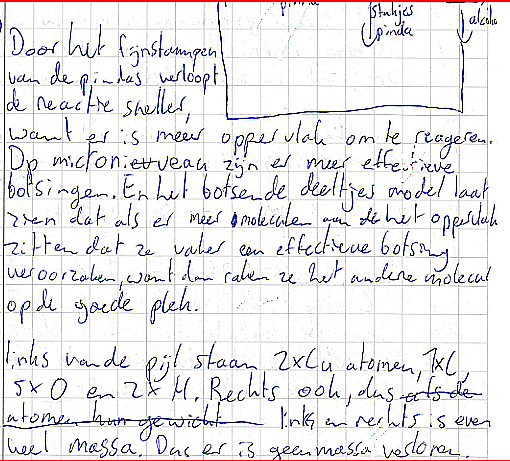 pinda
stukjes
pinda
alcoho
Door het fijnstampen
van de pindas verloopt
de reactie sneller,
want er is meer oppervlak om te reageren.
Op microniveau zijn er meer effectieve
botsingen. En het botsende deeltjes model laat
zien dat als er meer moleculen aan het oppervlak
zitten dat ze vaker een effectieve botsing
veroorzaken, want dan raken ze het andere molecul
op de goede plek.
links van de pijl staan 2xCu atomen, 1xC,
5xO en 2xH. Rechts ook, dus als de
atomen hun gewicht links en rechts is even
veel massa. Dus er is geen massa verloren.